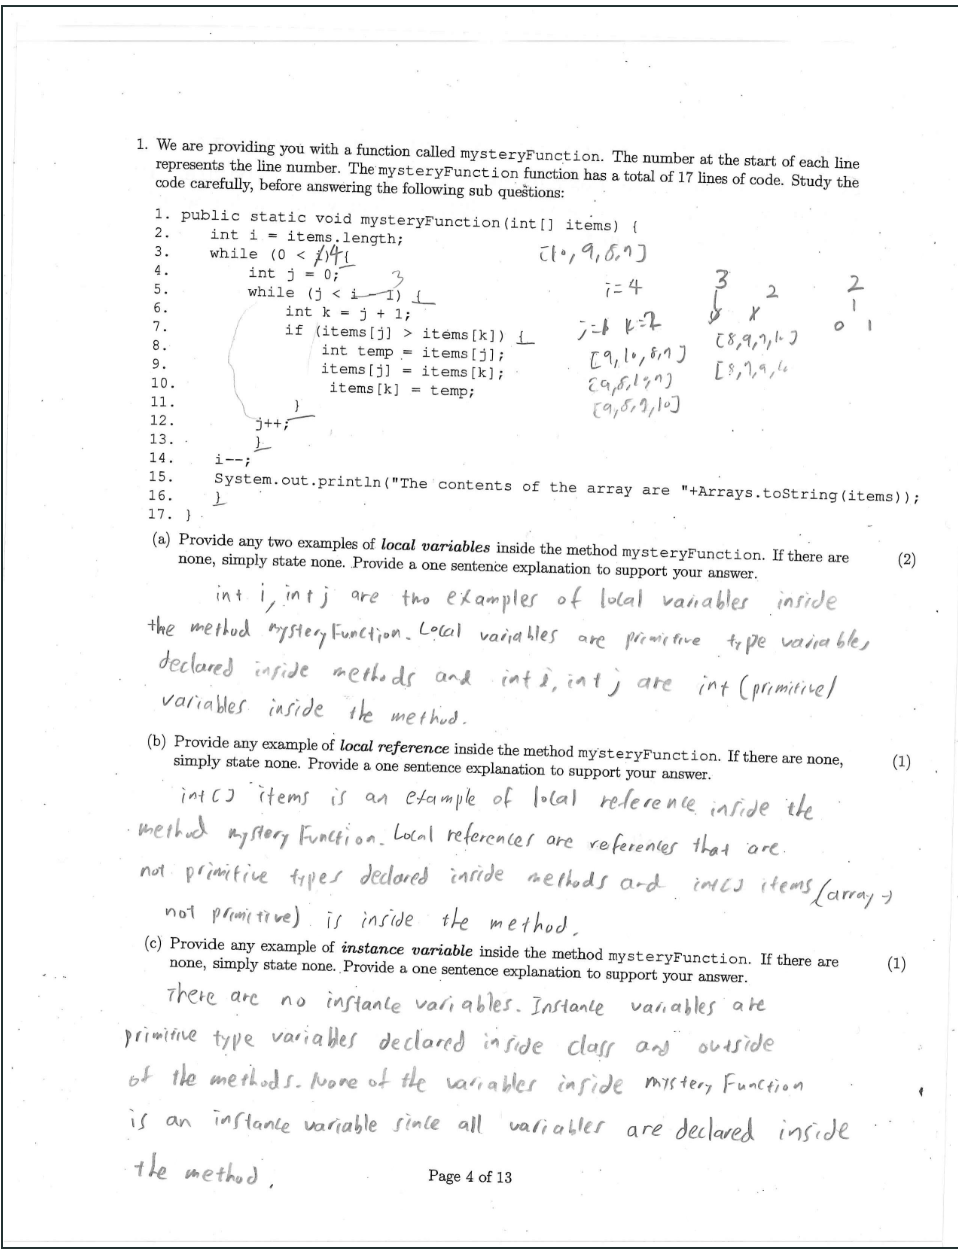 1. We are providing you with a function called mysteryFunction. The number at the start of each line
represents the line number. The mysteryFunction function has a total of 17 lines of code. Study the
code carefully, before answering the following sub questions:
1. public static void mysteryFunction(int[] items) {
2. int i = items.length;
3. while (0 < i) {
4
[10,9,8,7]
4. int j = 0;
3
i=4 3 2 2
5. while (j < i - 1) {
6. int k = j + 1;
k=2 0 1
7. if (items[j] > items[k]) {
8. int temp = items[j];
[9,10,8,7]
9. items[j] = items[k];
10. items[k] = temp;
11. }
12. j++;
13. }
14. i--;
15. System.out.println("The contents of the array are "+Arrays.toString(items));
16. }
17. }
(a) Provide any two examples of local variables inside the method mysteryFunction. If there are (2)
none, simply state none. Provide a one sentence explanation to support your answer.
int i, int j are two examples of local variables inside
the method mysteryFunction. Local variables are primitive type variables
declared inside methods and int i, int j are int (primitive)
variables inside the method.
(b) Provide any example of local reference inside the method mysteryFunction. If there are none, (1)
simply state none. Provide a one sentence explanation to support your answer.
int[] items is an example of local reference inside the
method mysteryFunction. Local references are references that are
not primitive types declared inside methods and int[] items (array →
not primitive) is inside the method.
(c) Provide any example of instance variable inside the method mysteryFunction. If there are (1)
none, simply state none. Provide a one sentence explanation to support your answer.
There are no instance variables. Instance variables are
primitive type variables declared inside class and outside
of the methods. None of the variables inside mysteryFunction
is an instance variable since all variables are declared inside
the method.
Page 4 of 13